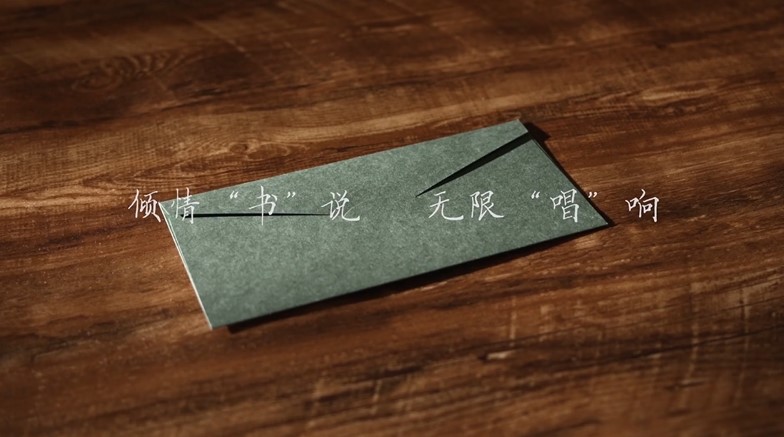 倾情“书”说　　无限“唱”响